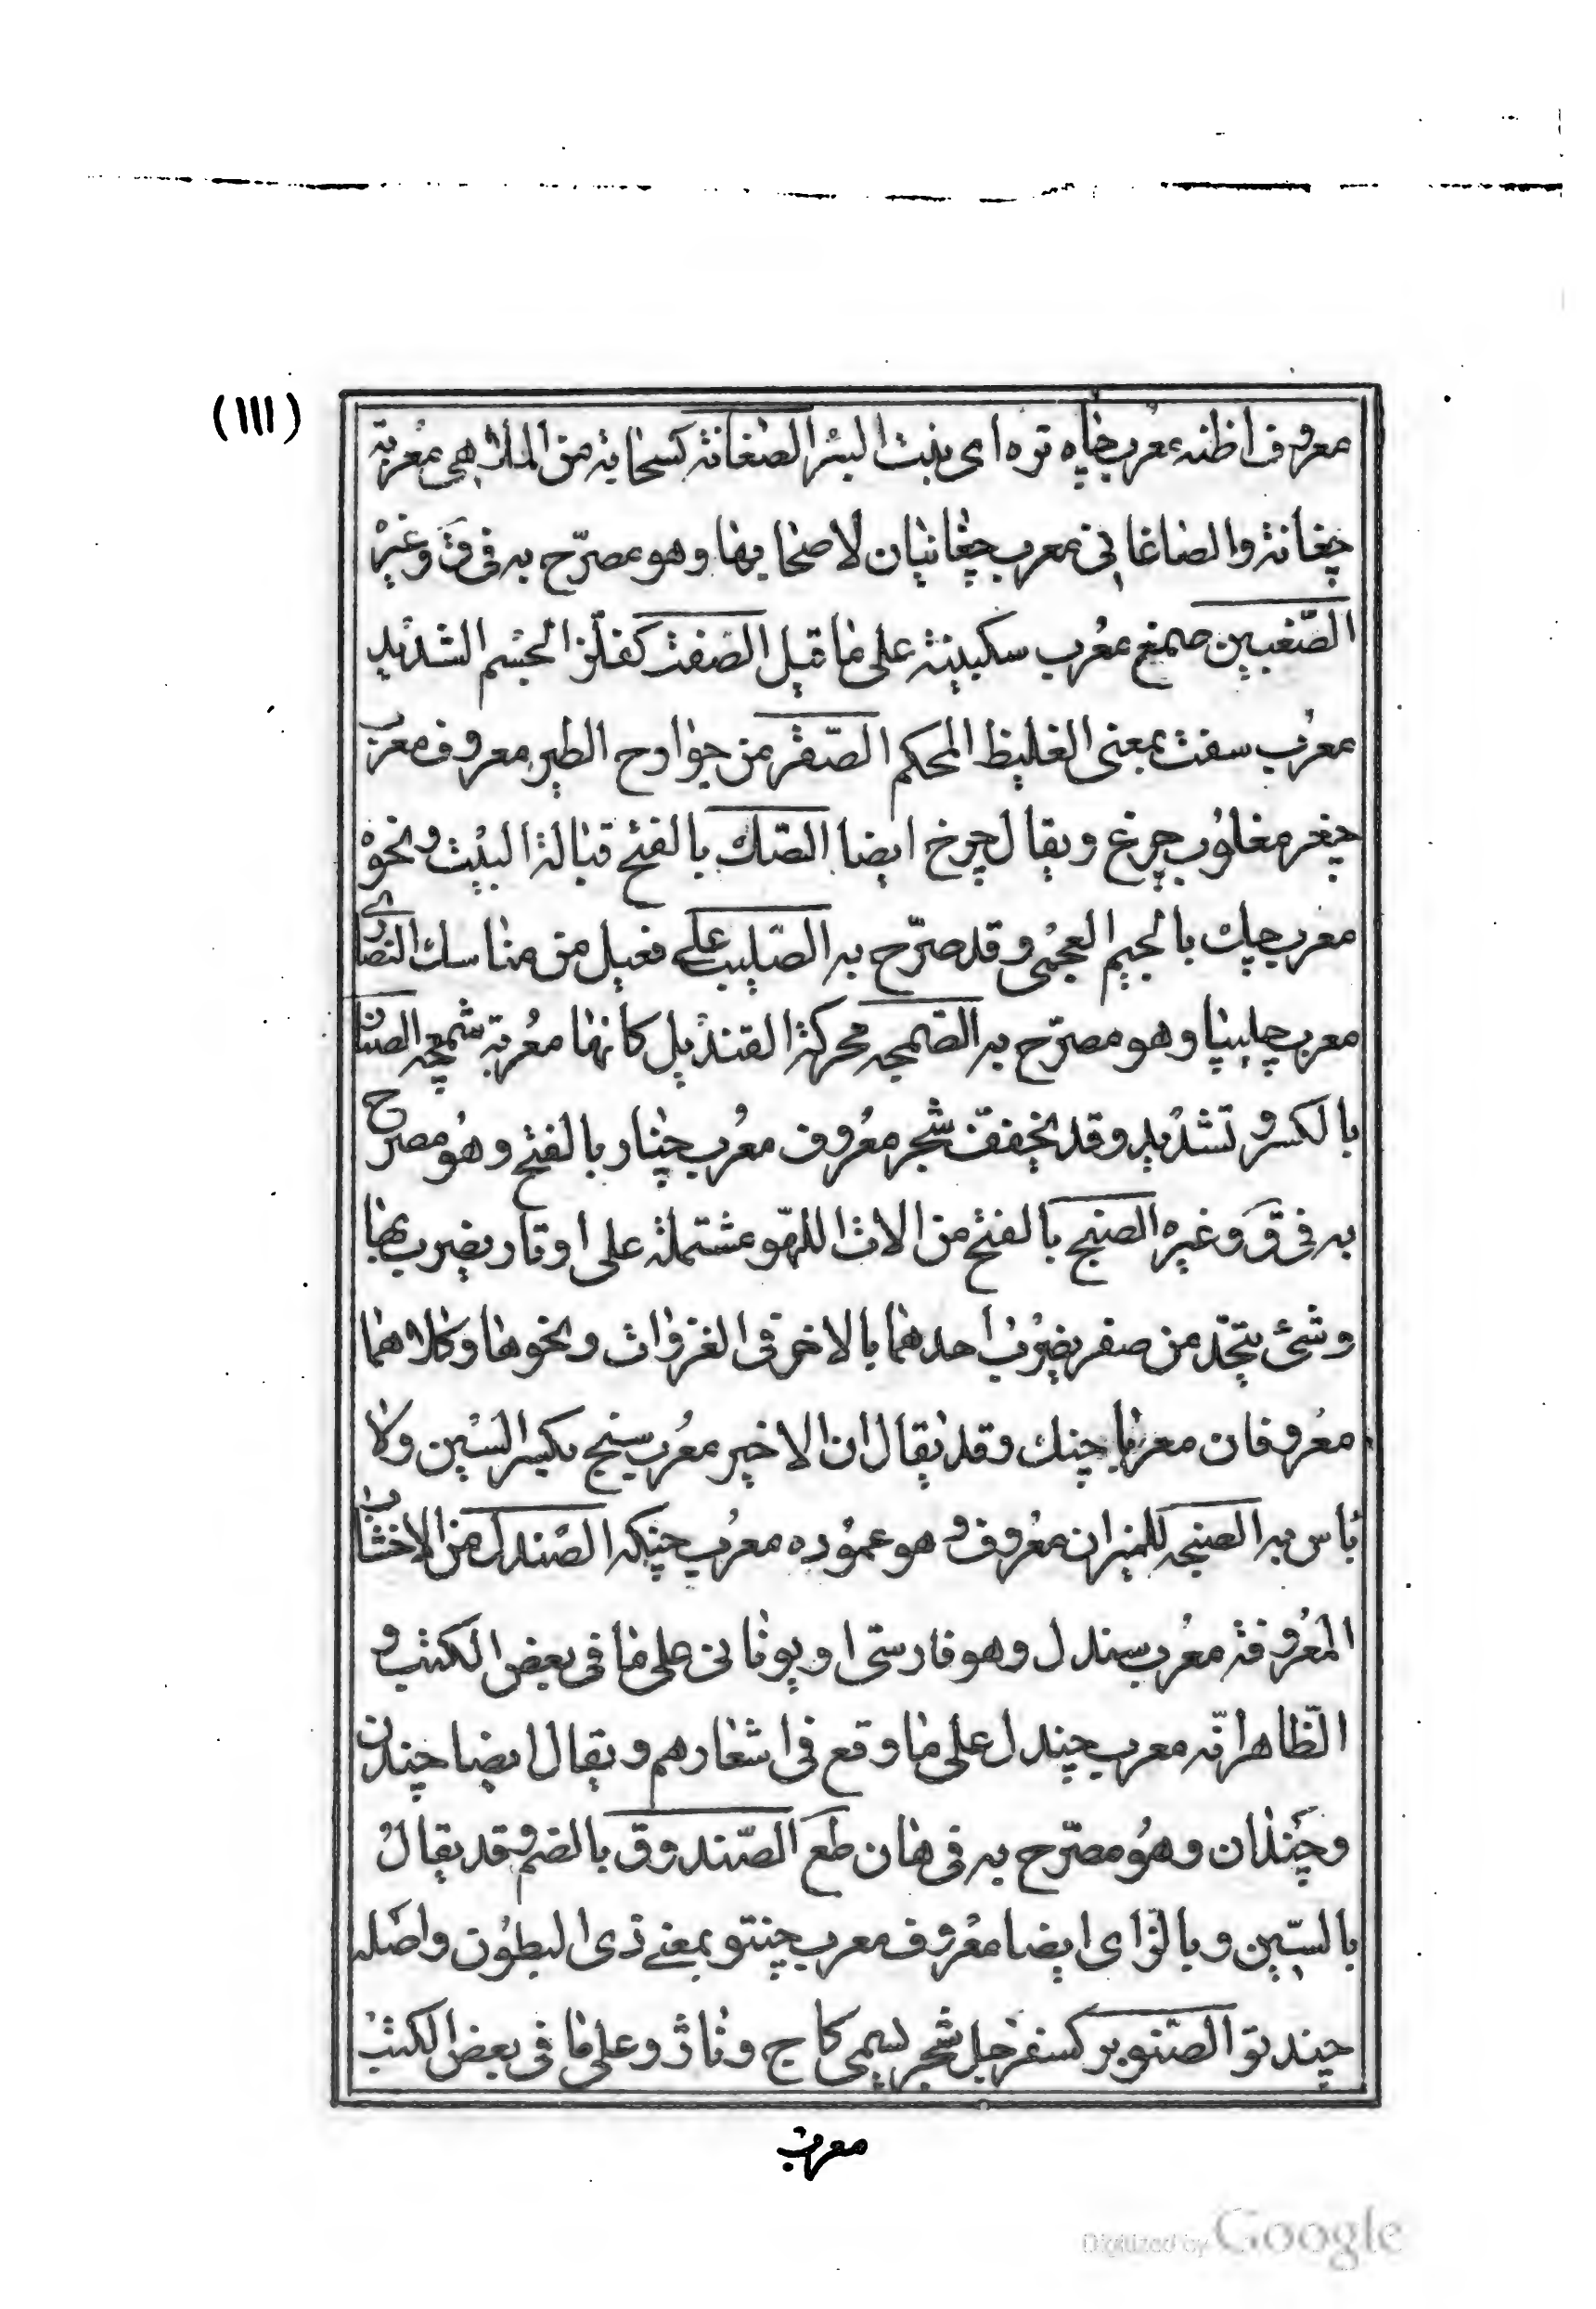 (١١١)
معروف اظنه معرب چاه تره اى بنت البئر الصغانة كسحابة من الملاهى معربة
چغانة والصاغانى معرب چغانيان لا صحابها وهو مصرّح به فى ق وغيره
الصّغبين صمغ معرب سكبينة على ما قيل الصفت كفلزّ الجسم الشديد
معرب سفت بمعنى الغليظ المحكم الصّقر من جوارح الطير معروف معرب
چغر مغلوب چرغ ويقال چرخ ايضا الصّك بالفتح قبالة البيت ونحوه
معرب چك بالجيم العجمى وقد صرّح به الصّليب على فعيل من مناسك النصارى
معرب چليپا وهو مصرّح به الصّمجه محركة القنديل كانها معربة شمعچه الصنار
بالكسر وتشديد وقد يخفف شجر معروف معرب چنار بالفتح وهو مصرح
به فى ق وغيره الصنج بالفتح من الات اللهو مشتملة على اوتار يضرب بها
وشئ يتخذ من صفر يضرب احدهما بالاخر فى الغزوات ونحوها وكلاهما
معروفان معربا چنك وقد يقال ان الاخير معرب سنج بكسر السين ولا
باس به الصنجه للميزان معروف وهو عموده معرب چنكه الصّندل من الاخشاب
المعروفة معرب سندل وهو فارسى او يونانى على ما فى بعض الكتب و
الظاهر انّه معرب چندل على ما وقع فى اشعارهم ويقال ايضا چندن
وچندان وهو مصرّح به فى هان طع الصّندوق بالضم وقد يقال
بالسّين وبالزاى ايضا معروف معرب چنتو بمعنى ذى البطون واصله
چند تو الصّنوبر كسفرجل شجر يسمى كاج وناژو على ما فى بعض الكتب
معرب
Digitized by Google